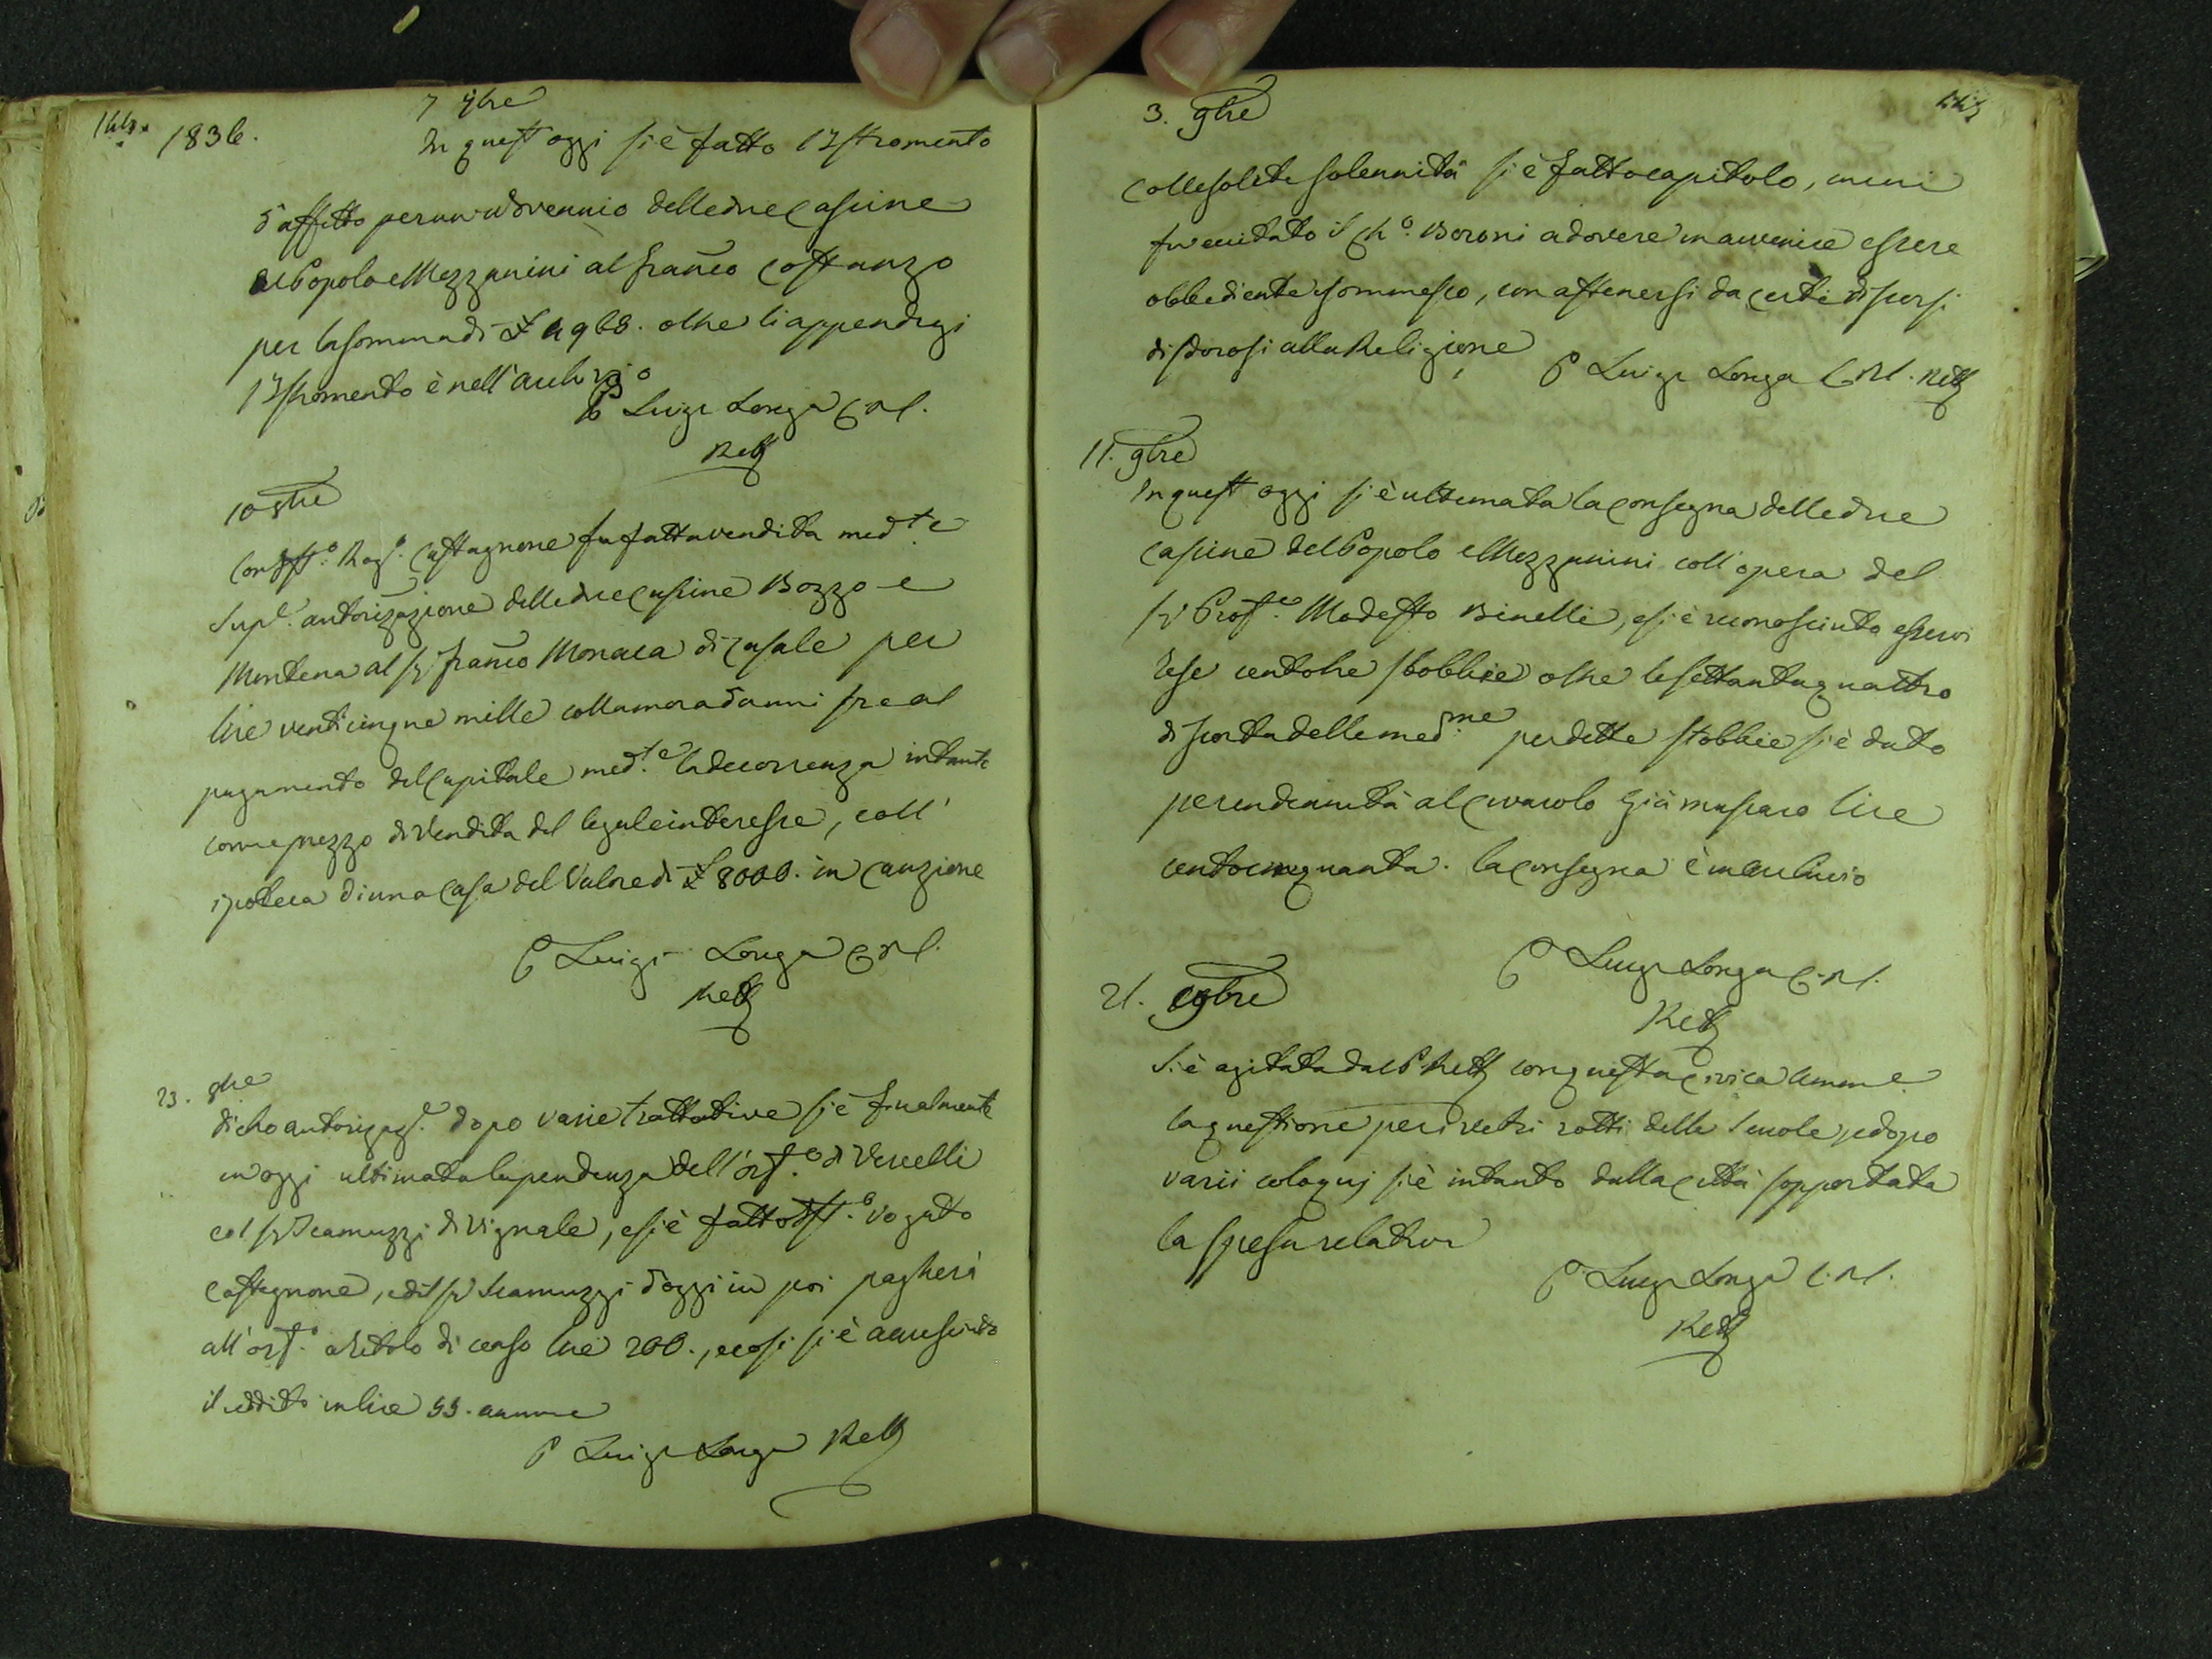 1836.
7 9bre
In quest oggi si è fatto l'Istromento
d'affitto per un novennio delle due Cascine
del Popolo e Mezzanini al Franco Costanzo
per la somma di £ 4968. oltre li appendizi
l'Istromento è nell'archivio
P Luigi Longa C.R.S.
Rett
10 9bre
Rog.o Castagnone fu fatta vendita med.te
Sup.e autorizzazione delle due Cascine Bozzo e
Montena al Sr Franco Monaca di Casale per
lire venticinque mille colla mora d'anni tre al
pagamento del Capitale med.te la decorrenza intante
come prezzo di vendita del legale interesse, coll'
ipoteca di una Casa del Valore di £ 8000. in Cauzione
P Luigi Longa C.R.S.
Rett
23. 9bre
dopo varie trattative si è finalmente
in oggi ultimata la pendenza dell'orf.o di Vercelli
col Sr Scamuzzi di Vignale, e si è fatto Rogato
Castagnone, ed il Sr Scamuzzi d'oggi in poi pagherà
all'orf.o a titolo di censo lire 200., e così si è accresciuto
il reddito in lire 55. annue
P Luigi Longa Rett
3. 9bre
Colle solite solennità si è fatto capitolo, in cui
fu eccitato il Ch.o Boroni a dovere in avvenire essere
obbediente e sommesso, con astenersi da certi discorsi
disdorosi alla Religione
P Luigi Longa C.R.S. Rett
11. 9bre
In quest oggi si è ultimata la Consegna delle due
Cascine del Popolo e Mezzanini coll'opera del
Sr Prof.e Modesto Binelli, e si è riconosciuto esservi
tese centotre stobbie oltre le settantaquattro
di scorta delle med.me per dette stobbie si è dato
per indennità al Civacolo già massaro lire
centocinquanta. la Consegna è in archivio
P Luigi Longa C.R.S.
Rett
21. 9bre
Si è agitata dal P Rett con questa Civica Amm.e
la questione per i vetri rotti delle Scuole, e dopo
varii coloquj si è intanto dalla Città sopportata
la spesa relativa
P Luigi Longa C.R.S.
Rett